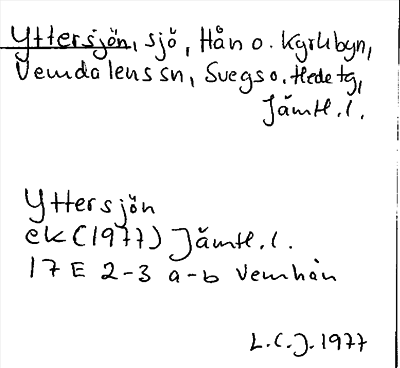 Yttersjön, sjö, Hån o. Kyrkbyn,
Vemdalens sn, Svegs o. Hede tg,
Jämtl. l.
Yttersjön
ek (1977) Jämtl. l.
17 E 2-3 a-b Vemhån
L.C.J. 1977